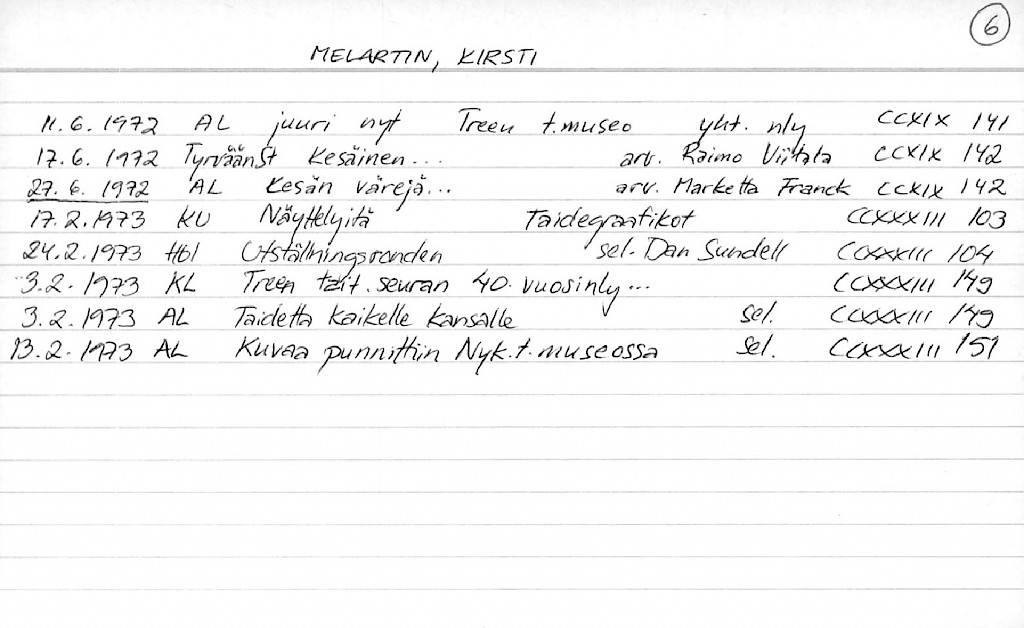 6
MELARTIN, KIRSTI
11.6.1972 AL juuri nyt Treen t.museo yht. nly CCXIX 141
17.6.1972 TyrväänSt Kesäinen... arv. Raimo Viitala CCXIX 142
27.6.1972 AL Kesän värejä... arv. Marketta Franck CCXIX 142
17.2.1973 KU Näyttelyitä Taidegraafikot CCXXXIII 103
24.2.1973 Hbl Utställningsronden sel. Dan Sundell CCXXXIII 104
3.2.1973 KL Treen tait.seuran 40.vuosinly... CCXXXIII 149
3.2.1973 AL Taidetta kaikelle kansalle sel. CCXXXIII 149
13.2.1973 AL Kuvaa punnittiin Nyk.t.museossa sel. CCXXXIII 151